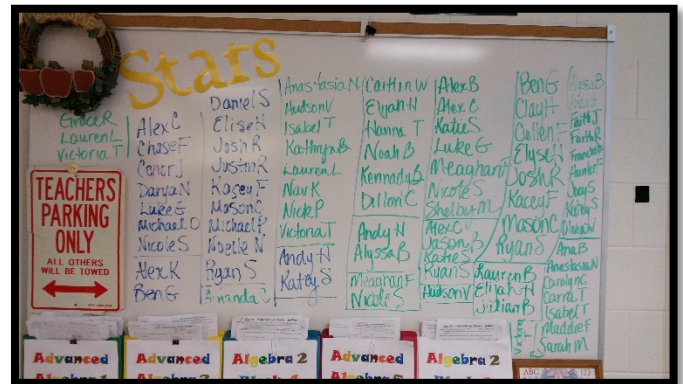 Stars
Grace R
Lauren L
Victoria T
Alex C
Chase F
Conor J
Danya N
Luke G
Michael O
Nicole S
Alex K
Ben G
Daniel S
Elise H
Josh R
Justin R
Kasey F
Mason C
Michael P
Noelle N
Ryan S
Amanda
Anastasia N
Hudson V
Isabel T
Kathryn B
Lauren L
Nav K
Nick P
Victoria T
Andy H
Katey S
Caitlin W
Elijah H
Hanna T
Noah B
Kennedy B
Dillon C
Andy H
Alyssa B
Meaghan F
Nicole S
Alex B
Alex C
Katie S
Luke G
Meaghan F
Nicole S
Shelby M
Alex C
Jason B
Katie S
Ryan S
Hudson V
Ben G
Clay H
Cullen F
Elyse H
Josh R
Kacey F
Mason C
Ryan S
Lauren B
Elijah H
Jillian B
Faith J
Faith R
Hunter F
Joey S
Katey S
Ana B
Anastasia N
Carolyn C
Carra T
Isabel T
Maddie F
Sarah M
TEACHERS
PARKING
ONLY
ALL OTHERS
WILL BE TOWED
Advanced
Advanced
Algebra 2
Advanced
Algebra 2
ABC
123